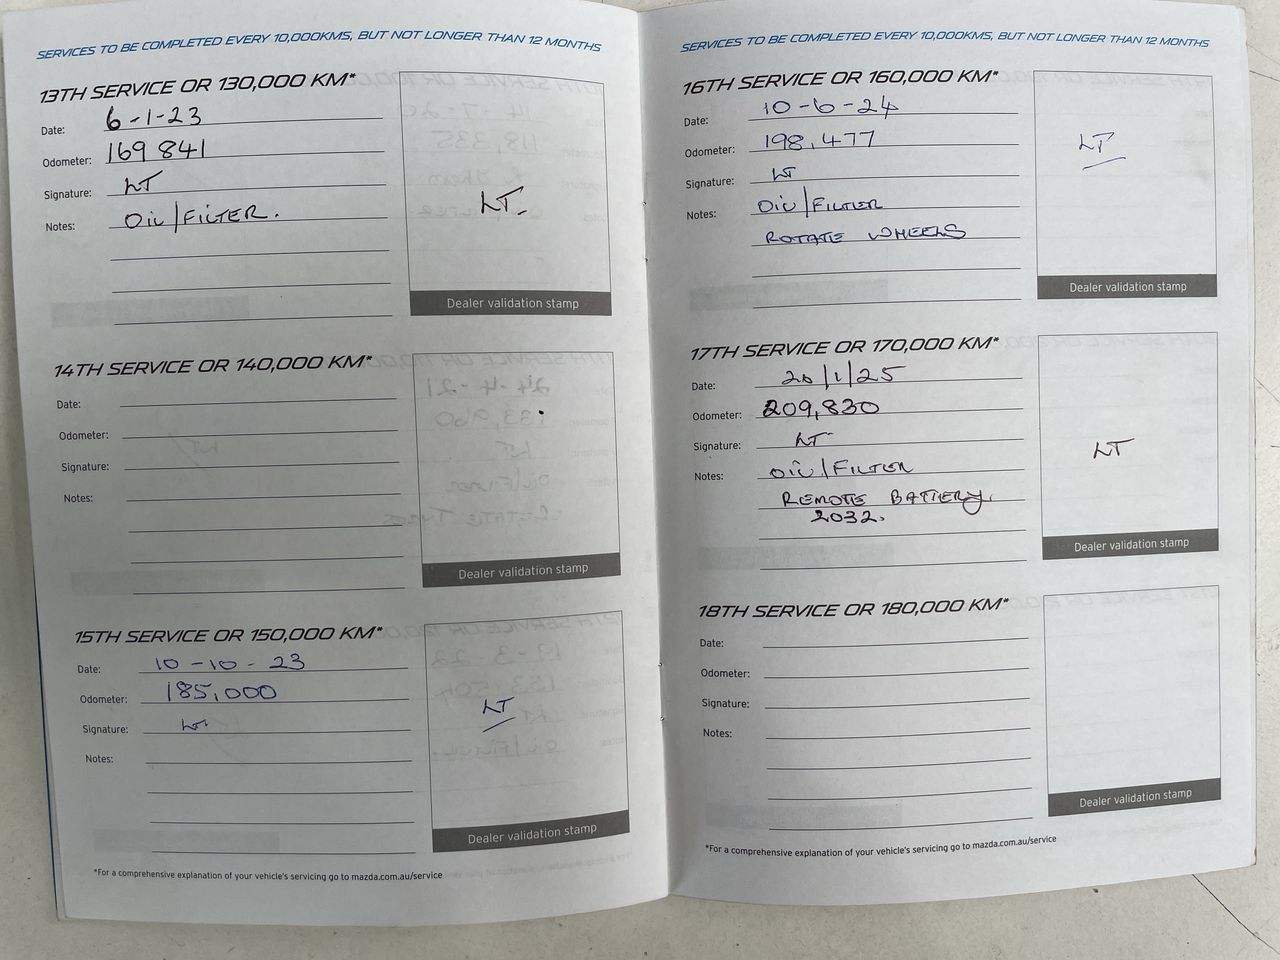 SERVICES TO BE COMPLETED EVERY 10,000KMS, BUT NOT LONGER THAN 12 MONTHS
13TH SERVICE OR 130,000 KM*
Date: 6-1-23
Odometer: 169 841
Signature: LT
Notes: OIL/FILTER.
LT.
Dealer validation stamp
14TH SERVICE OR 140,000 KM*
Date:
Odometer:
Signature:
Notes:
Dealer validation stamp
15TH SERVICE OR 150,000 KM*
Date: 10-10-23
Odometer: 185,000
Signature: LT.
Notes:
LT
Dealer validation stamp
*For a comprehensive explanation of your vehicle's servicing go to mazda.com.au/service
SERVICES TO BE COMPLETED EVERY 10,000KMS, BUT NOT LONGER THAN 12 MONTHS
16TH SERVICE OR 160,000 KM*
Date: 10-6-24
Odometer: 198,477
Signature: LT
Notes: OIL/FILTER
ROTATE WHEELS
LT
Dealer validation stamp
17TH SERVICE OR 170,000 KM*
Date: 20/1/25
Odometer: 209,830
Signature: LT
Notes: OIL/FILTER
REMOTE BATTERY.
2032.
LT
Dealer validation stamp
18TH SERVICE OR 180,000 KM*
Date:
Odometer:
Signature:
Notes:
Dealer validation stamp
*For a comprehensive explanation of your vehicle's servicing go to mazda.com.au/service